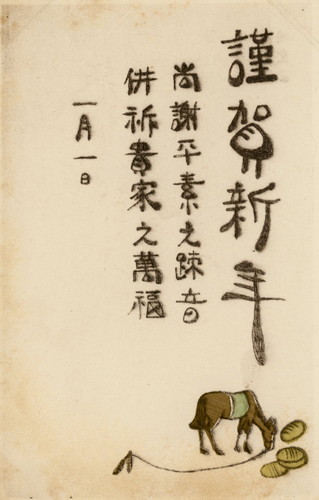 謹賀新年
尚謝平素之疎音
併祈貴家之萬福
一月一日